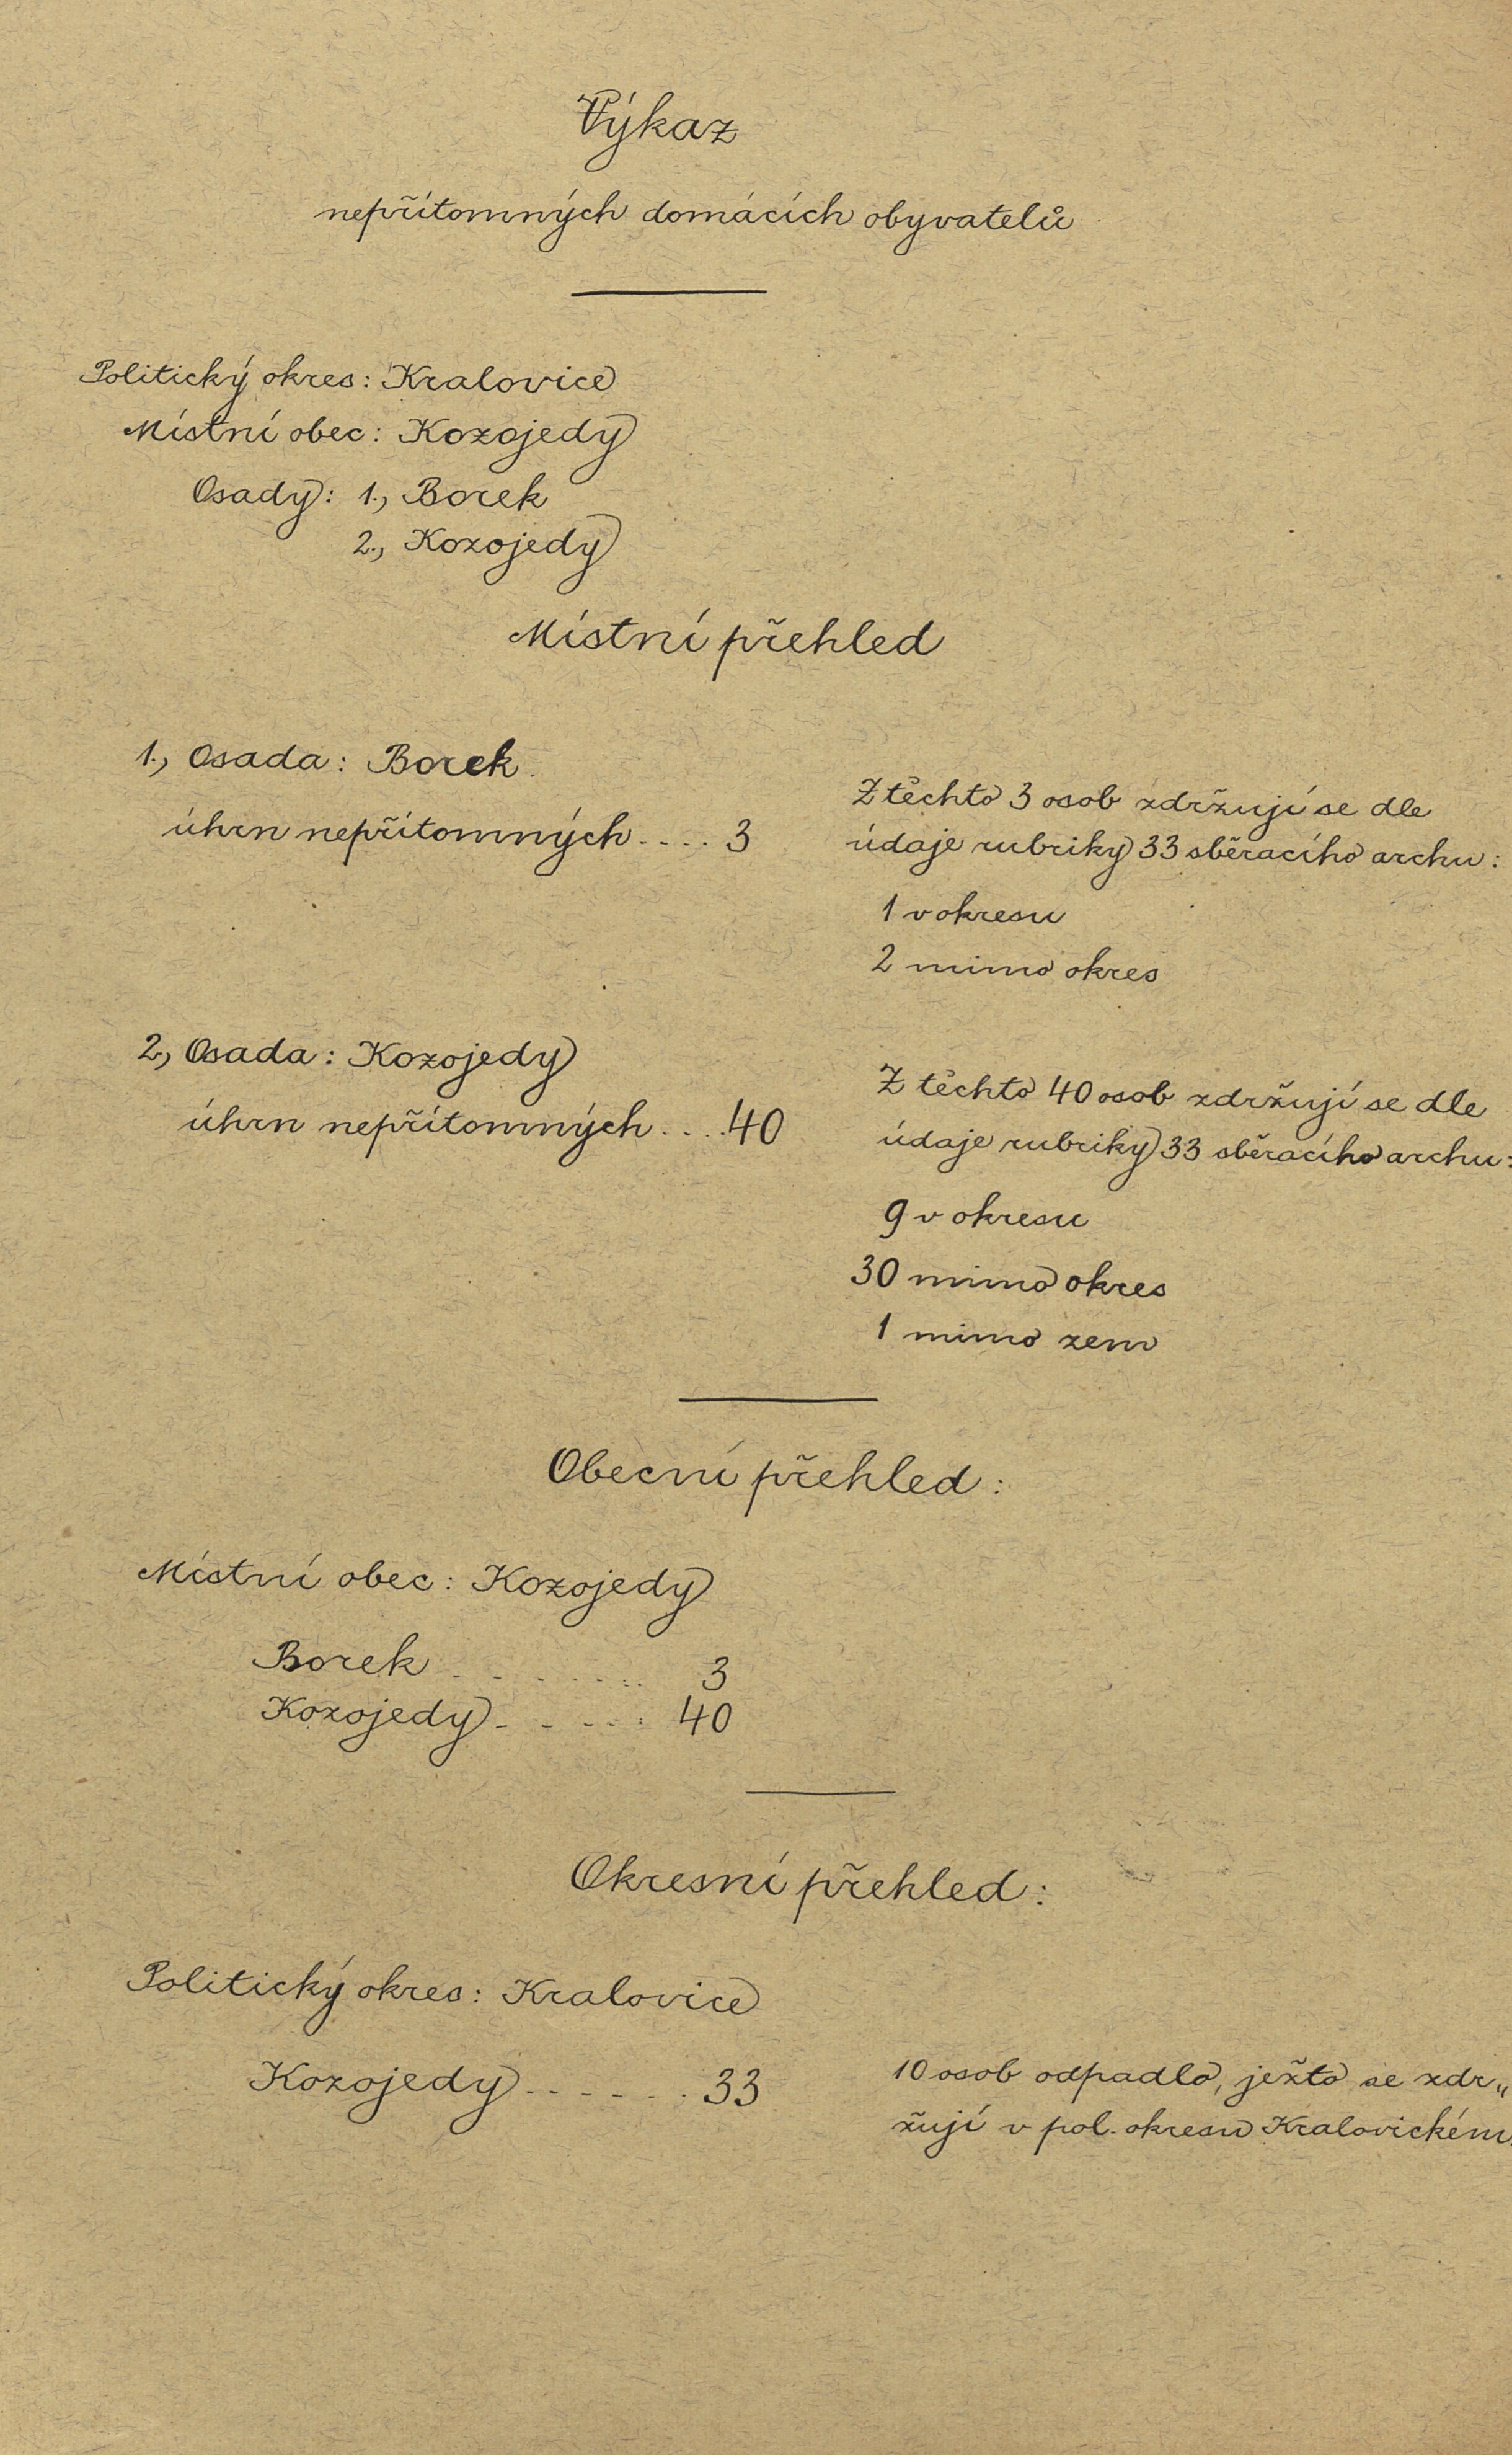 Výkaz
nepřítomných domácích obyvatelů
Politický okres: Kralovice
Místní obec: Kozojedy
Osady: 1., Borek
2., Kozojedy
Místní přehled
1., Osada: Borek
úhrn nepřítomných .... 3
Z těchto 3 osob zdržují se dle
údaje rubriky 33 sběracího archu:
1 v okresu
2 mimo okres
2., Osada: Kozojedy
úhrn nepřítomných .... 40
Z těchto 40 osob zdržují se dle
údaje rubriky 33 sběracího archu:
9 v okresu
30 mimo okres
1 mimo zem
Obecní přehled:
Místní obec: Kozojedy
Borek ....... 3
Kozojedy ..... 40
Okresní přehled:
Politický okres: Kralovice
Kozojedy ...... 33
10 osob odpadlo, ježto se zdr„
žují v pol. okresu Kralovickém